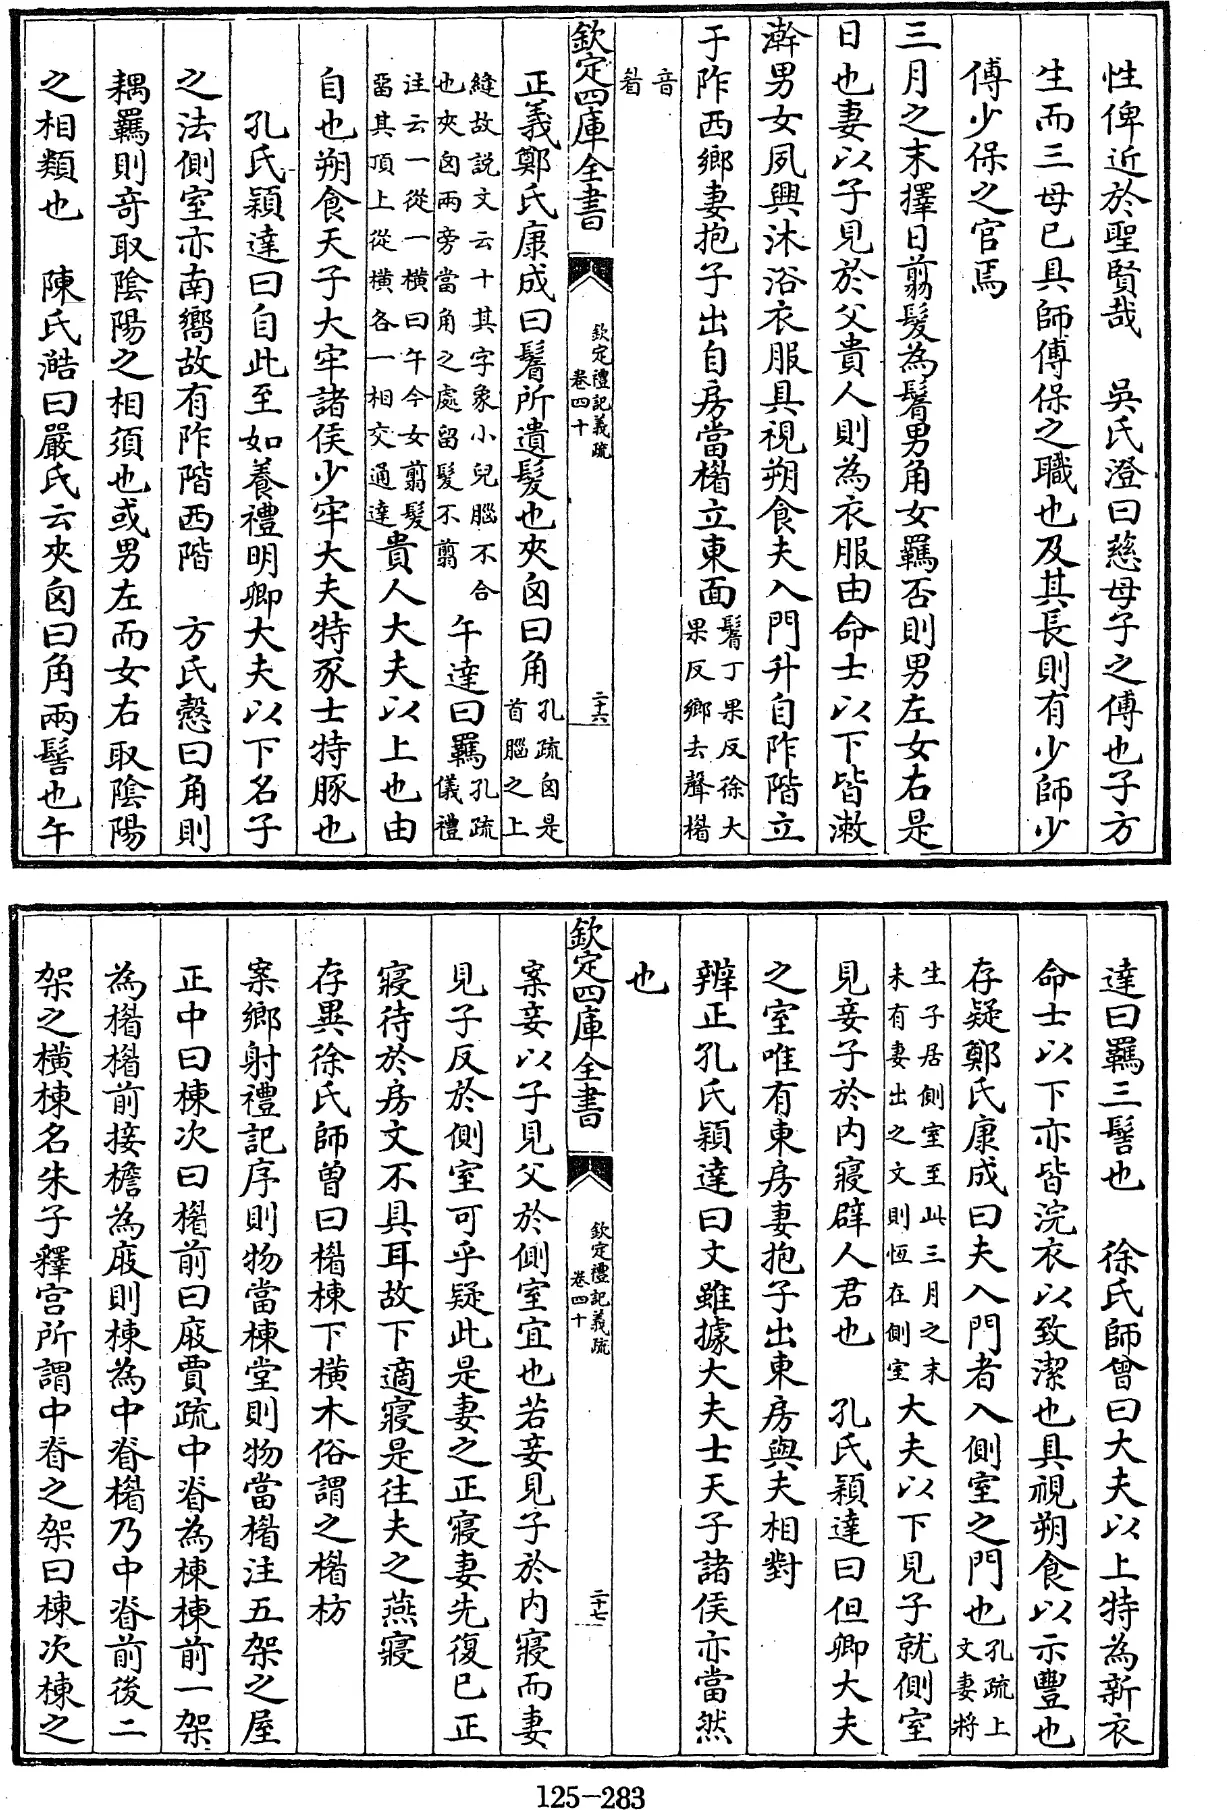 性俾近於聖賢哉　吳氏澄曰慈母子之傅也子方
生而三母已具師傅保之職也及其長則有少師少
傅少保之官焉
三月之末擇日翦髮為鬌男角女羈否則男左女右是
日也妻以子見於父貴人則為衣服由命士以下皆漱
澣男女夙興沐浴衣服具視朔食夫入門升自阼階立
于阼西鄉妻抱子出自房當楣立東面鬌丁果反徐大果反鄉去聲楣
音眉
欽定四庫全書
欽定禮記義疏
卷四十
二十六
正義鄭氏康成曰鬌所遺髮也夾囟曰角孔疏囟是首腦之上
縫故說文云十其字象小兒腦不合也夾囟兩旁當角之處留髮不翦午達曰羈孔疏儀禮
注云一從一橫曰午今女翦髮留其頂上從橫各一相交通達貴人大夫以上也由
自也朔食天子大牢諸侯少牢大夫特豕士特豚也
孔氏穎達曰自此至如養禮明卿大夫以下名子
之法側室亦南嚮故有阼階西階　方氏慤曰角則
耦羈則奇取陰陽之相須也或男左而女右取陰陽
之相類也　陳氏澔曰嚴氏云夾囟曰角兩髻也午
達曰羈三髻也　徐氏師曾曰大夫以上特為新衣
命士以下亦皆浣衣以致潔也具視朔食以示豐也
存疑鄭氏康成曰夫入門者入側室之門也孔疏上文妻將
生子居側室至此三月之末未有妻出之文則恆在側室大夫以下見子就側室
見妾子於內寢辟人君也　孔氏穎達曰但卿大夫
之室唯有東房妻抱子出東房與夫相對
辨正孔氏穎達曰文雖據大夫士天子諸侯亦當然
也
欽定四庫全書
欽定禮記義疏
卷四十
二十七
案妾以子見父於側室宜也若妾見子於內寢而妻
見子反於側室可乎疑此是妻之正寢妻先復已正
寢待於房文不具耳故下適寢是往夫之燕寢
存異徐氏師曾曰楣棟下橫木俗謂之楣枋
案鄉射禮記序則物當棟堂則物當楣注五架之屋
正中曰棟次曰楣前曰庪賈疏中脊為棟棟前一架
為楣楣前接檐為庪則棟為中脊楣乃中脊前後二
架之橫棟名朱子釋宮所謂中脊之架曰棟次棟之
125-283